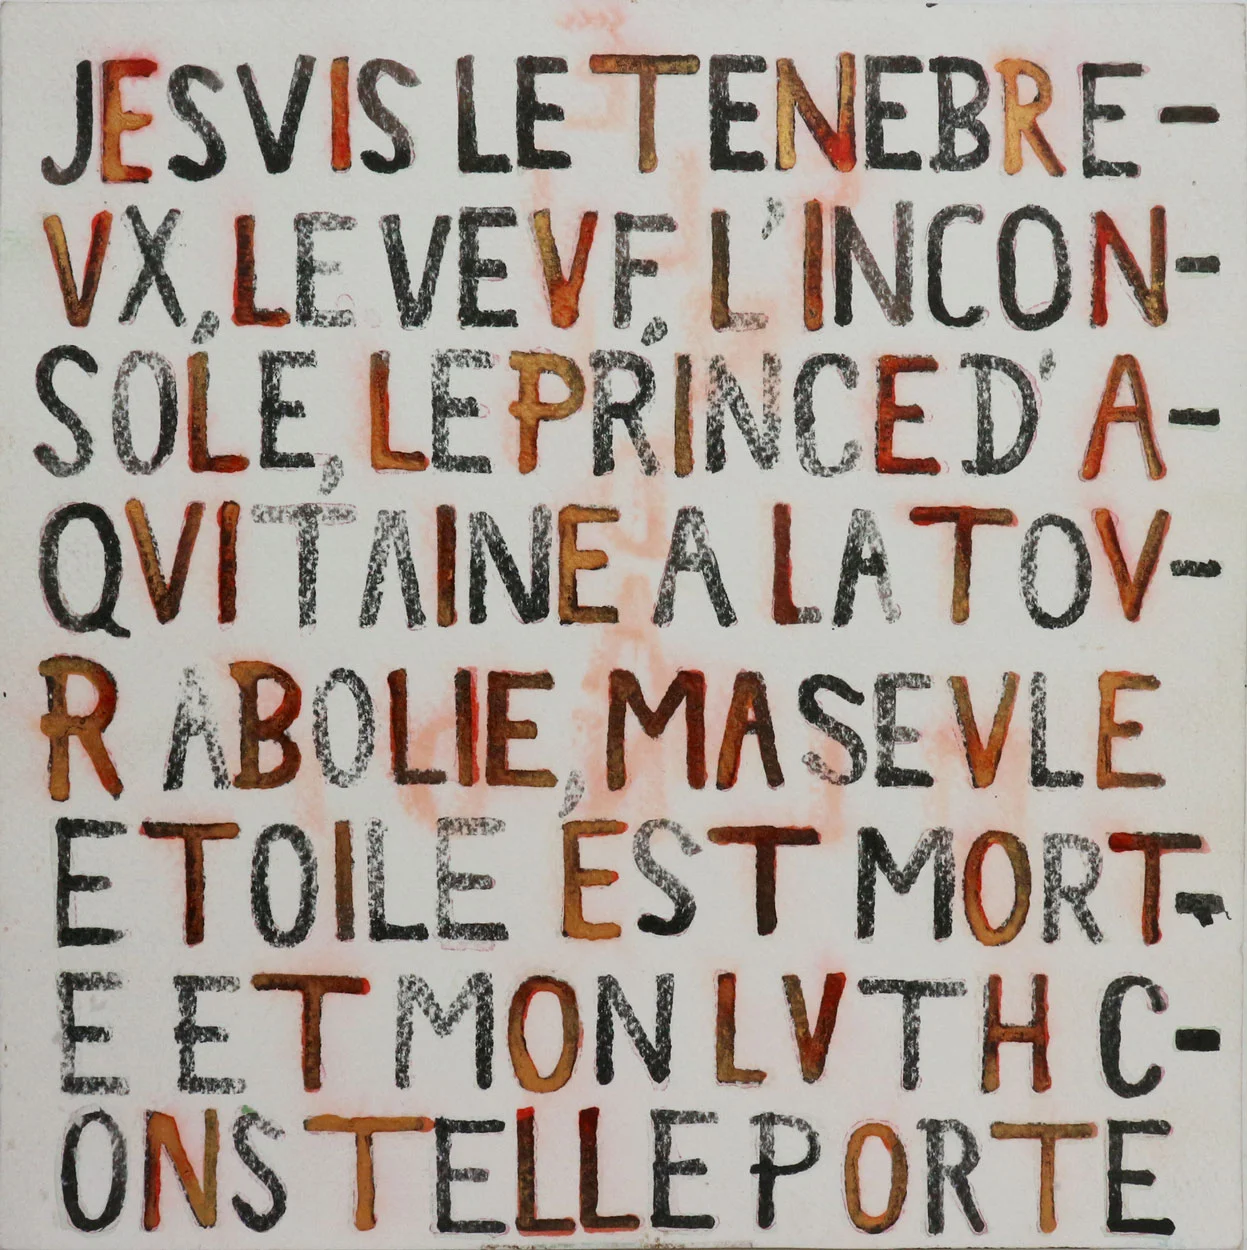 JE SVIS LE TENEBRE-
VX, LE VEVF, L'INCON-
SOLE, LE PRINCE D'A-
QVITAINE A LA TOV-
R ABOLIE, MA SEVLE
ETOILE EST MORT-
E ET MON LVTH C-
ONSTELLE PORTE